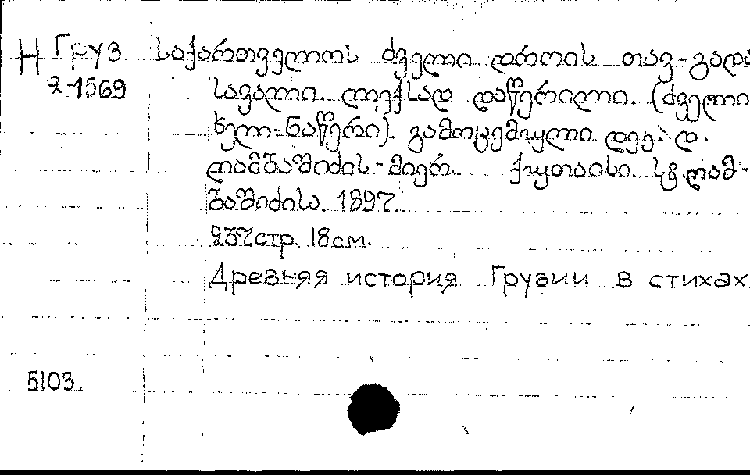 Н Груз
2-1569
საქართველოს ძველი დროის თავ-გადა
სავალი ლექსად დაწერილი. (ძველი
ხელ-ნაწერი). გამოცემული დეკ. დ.
ღამბაშიძის-მიერ. ქუთაისი. სტ. ღამ-
ბაშიძისა. 1897.
стр. 18см.
Древняя история Грузии в стихах
5103.